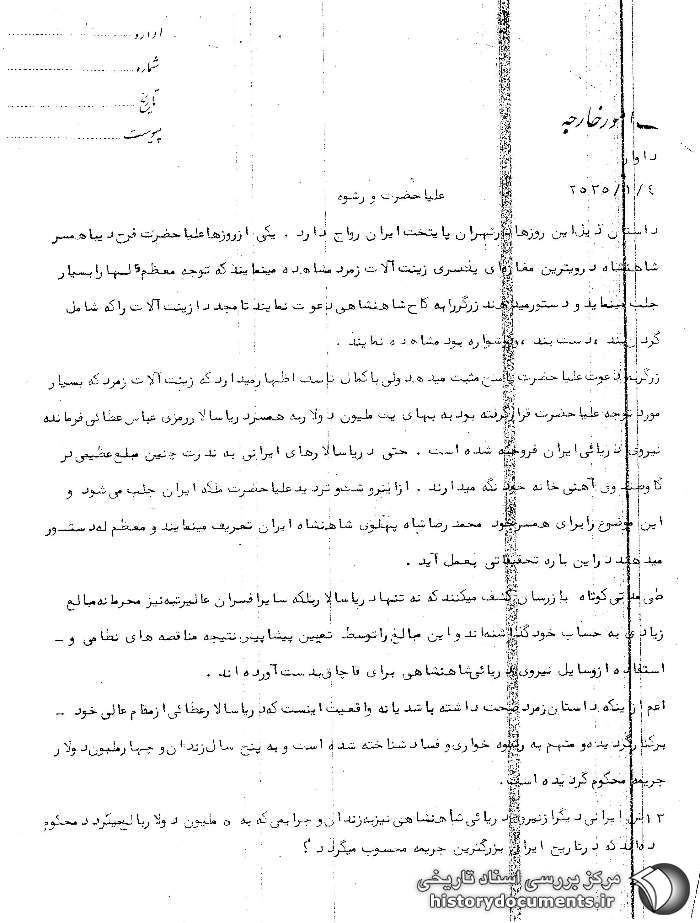 اداره
شماره
تاریخ
پیوست
امور خارجه
۲۵۳۵/۱/۴
علیاحضرت و رشوه
داستان ذیل این روزها در تهران پایتخت ایران رواج دارد . یکی از روزها علیاحضرت فرح دیبا همسر
شاهنشاه در ویترین مغازه ای یکسری زینت آلات زمرد مشاهده مینمایند که توجه معظم لها را بسیار
جلب مینماید و دستور میدهند زرگر را به کاخ شاهنشاهی دعوت نمایند تا مجددا زینت آلات را که شامل
گردن بند ، دست بند ، گوشواره بود مشاهده نمایند .
زرگر به دعوت علیاحضرت پاسخ مثبت میدهد ولی با کمال تاسف اظهار میدارد که زینت آلات زمرد که بسیار
مورد توجه علیاحضرت قرار گرفته بود به بهای یک ملیون دولار به همسر دریاسالار رمزی عباس عطائی فرمانده
نیروی دریائی ایران فروخته شده است . حتی دریاسالارهای ایرانی به ندرت چنین مبلغ عظیمی در
گاوصندوق آهنی خانه خود نگه میدارند . از اینرو شک و تردید علیاحضرت ملکه ایران جلب می شود و
این موضوع را برای همسر خود محمد رضا شاه پهلوی شاهنشاه ایران تعریف مینمایند و معظم له دستور
میدهند در این باره تحقیقاتی بعمل آید .
طی مدتی کوتاه بازرسان کشف میکنند که نه تنها دریاسالار بلکه سایر افسران عالیرتبه نیز محرمانه مبالغ
زیادی به حساب خود گذاشته اند و این مبالغ را توسط تعیین پیشاپیش نتیجه مناقصه های نظامی و -
استفاده از وسایل نیروی دریائی شاهنشاهی برای قاچاق بدست آورده اند .
اعم از اینکه داستان زمرد صحت داشته باشد یا نه واقعیت اینست که دریاسالار عطائی از مقام عالی خود -
برکنار گردیده و متهم به رشوه خواری و فساد شناخته شده است و به پنج سال زندان و چهار ملیون دولار
جریمه محکوم گردیده است .
۱۳ نفر ایرانی دیگر از نیروی دریائی شاهنشاهی نیز به زندان و جرایمی که به ۵ ملیون دولار بالغ میگردد محکوم
شده اند که در تاریخ ایران بزرگترین جریمه محسوب میگردد ؟
مرکز بررسی اسناد تاریخی
historydocuments.ir